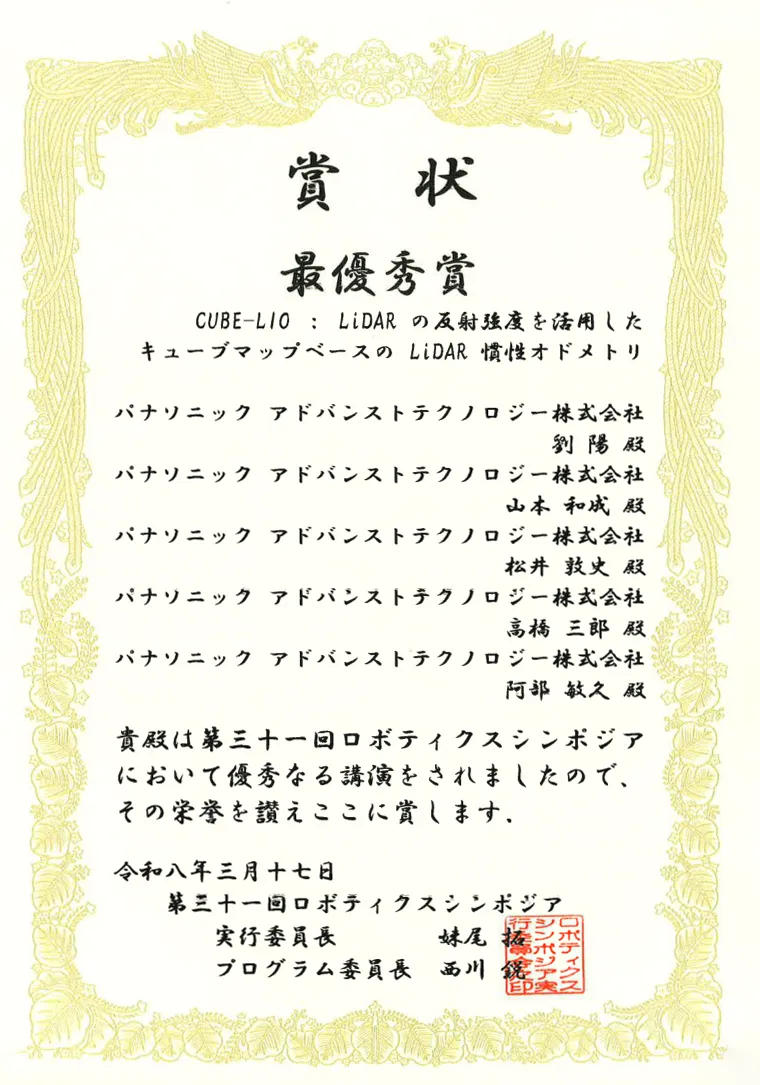 賞 状
最優秀賞
CUBE-LIO : LiDAR の反射強度を活用した
キューブマップベースの LiDAR 慣性オドメトリ
パナソニック アドバンストテクノロジー株式会社
劉 陽 殿
パナソニック アドバンストテクノロジー株式会社
山本 和成 殿
パナソニック アドバンストテクノロジー株式会社
松井 敦史 殿
パナソニック アドバンストテクノロジー株式会社
高橋 三郎 殿
パナソニック アドバンストテクノロジー株式会社
阿部 敏久 殿
貴殿は第三十一回ロボティクスシンポジア
において優秀なる講演をされましたので、
その栄誉を讃えここに賞します.
令和八年三月十七日
第三十一回ロボティクスシンポジア
実行委員長 妹尾 拓
プログラム委員長 西川 鋭
ロボティクス
シンポジア実